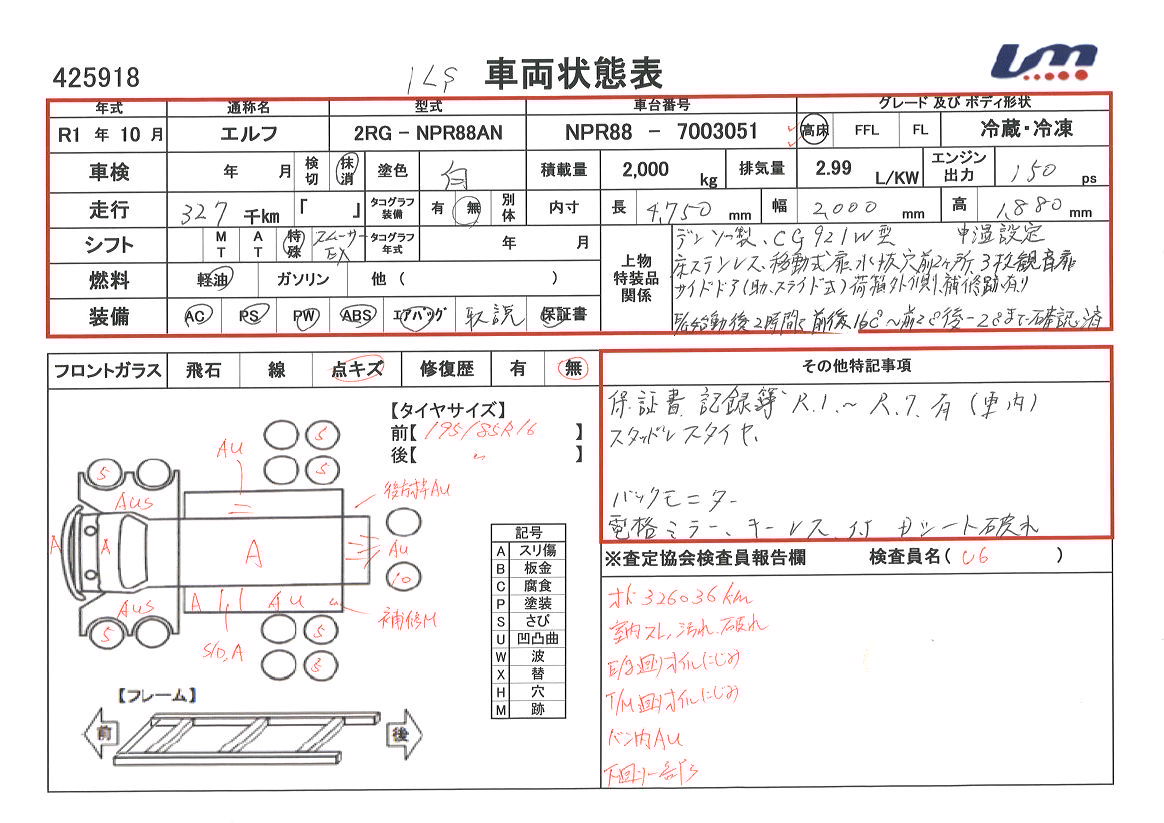 425918
車両状態表
年式 通称名 型式 車台番号 グレード 及び ボディ形状
R1 年 10 月 エルフ 2RG - NPR88AN NPR88 - 7003051 高床 FFL FL 冷蔵・冷凍
車検 年 月 検切 抹消 塗色 白 積載量 2,000 kg 排気量 2.99 L/KW エンジン出力 150 ps
走行 327 千km 「 」 タコグラフ装備 有 無 別体 内寸 長 4,750 mm 幅 2,000 mm 高 1,880 mm
シフト MT AT 特殊 スムーサーEX タコグラフ年式 年 月
燃料 軽油 ガソリン 他 ( )
装備 AC PS PW ABS エアバッグ 取説 保証書
上物特装品関係
デンソー製、CG921W型 中温設定
床ステンレス、移動式扉、水抜穴前2ヶ所、3枚観音扉
サイドドア(助、スライド式) 荷箱外側、補修跡有り
始動後2時間で前後16℃~前2℃後-2℃まで確認済
フロントガラス 飛石 線 点キズ 修復歴 有 無
その他特記事項
保証書 記録簿 R.1.~R.7.有(車内)
スタッドレスタイヤ、
バックモニター
電格ミラー、キーレス付 Dシート破れ
【タイヤサイズ】
前【 195/85R16 】
後【 〃 】
5 5 5 AU
AUS 後付枠AU
A A A AU
10
AUS A AU 補修M
5 5 5
S/D,A
記号
A スリ傷
B 板金
C 腐食
P 塗装
S さび
U 凹凸曲
W 波
X 替
H 穴
M 跡
【フレーム】
前 後
※査定協会検査員報告欄 検査員名( U6 )
オド326036km
室内スレ、汚れ、破れ
E/g廻りオイルにじみ
T/M廻りオイルにじみ
バン内AU
下回り一部S